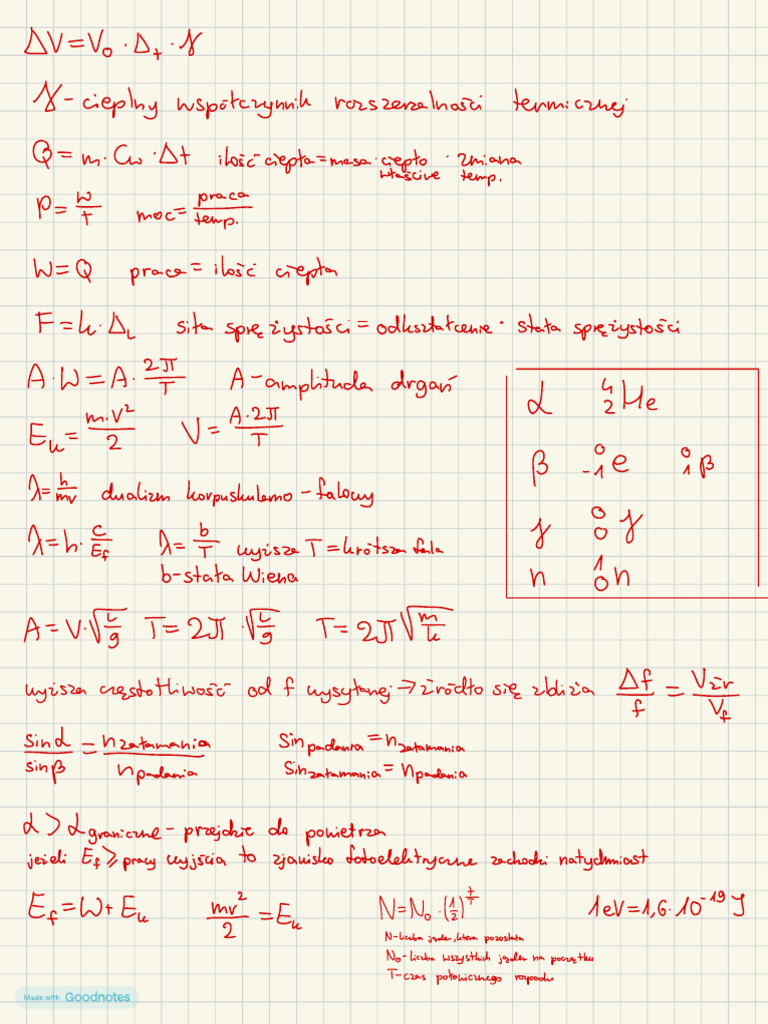 ΔV = V₀ · Δₜ · γ
γ - cieplny współczynnik rozszerzalności termicznej
Q = m · Cw · Δt ilość ciepła = masa · ciepło właściwe · zmiana temp.
P = W/T moc = praca/temp.
W = Q praca = ilość ciepła
F = k · Δ_L siła sprężystości = odkształcenie · stała sprężystości
A · W = A · 2π/T A - amplituda drgań
E_k = m·V²/2 V = A·2π/T
λ = h/mv dualizm korpuskularno - falowy
λ = h · c/E_f λ = b/T wyższa T = krótsza fala
b - stała Wiena
α ⁴₂He
β ⁰₋₁e ⁰₁β
γ ⁰₀γ
n ¹₀n
A = V · √(L/g) T = 2π · √(L/g) T = 2π √(m/k)
wyższa częstotliwość od f wysyłanej → źródło się zbliża Δf/f = Vźr/V_f
sinα/sinβ = n załamania/n padania sin padania = n załamania
sin załamania = n padania
α > α graniczne - przejdzie do powietrza
jeżeli E_f ⩾ pracy wyjścia to zjawisko fotoelektryczne zachodzi natychmiast
E_f = W + E_k mv²/2 = E_k N = N₀ · (1/2)^(t/T) 1eV = 1,6 · 10⁻¹⁹ J
N - liczba jąder, która pozostała
N₀ - liczba wszystkich jąder na początku
T - czas połowicznego rozpadu
Made with Goodnotes